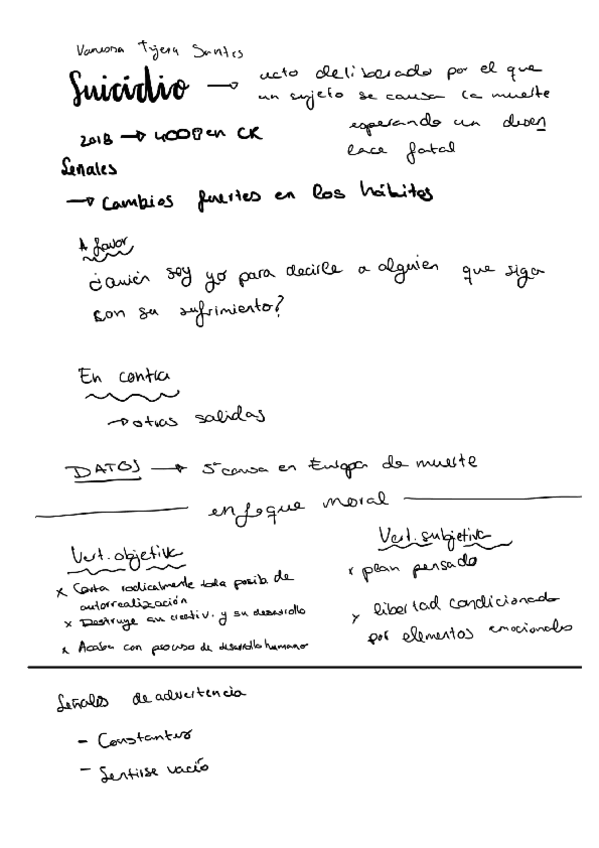 Vanessa Tijera Santos
Suicidio → acto deliberado por el que
un sujeto se causa la muerte
esperando un desen
lace fatal
2018 → en CR
Señales
→ Cambios fuertes en los hábitos
A favor
¿Quién soy yo para decirle a alguien que siga
con su sufrimiento?
En contra
→ otras salidas
DATOS → 5ª causa en Europa de muerte
enfoque moral
Vert. objetiva
x Corta radicalmente toda posib. de
autorrealización
x Destruye su creativ. y su desarrollo
x Acaba con proceso de desarrollo humano
Vert. subjetiva
x plan pensado
x libertad condicionada
por elementos emocionales
Señales de advertencia
- Constantes
- Sentirse vacío